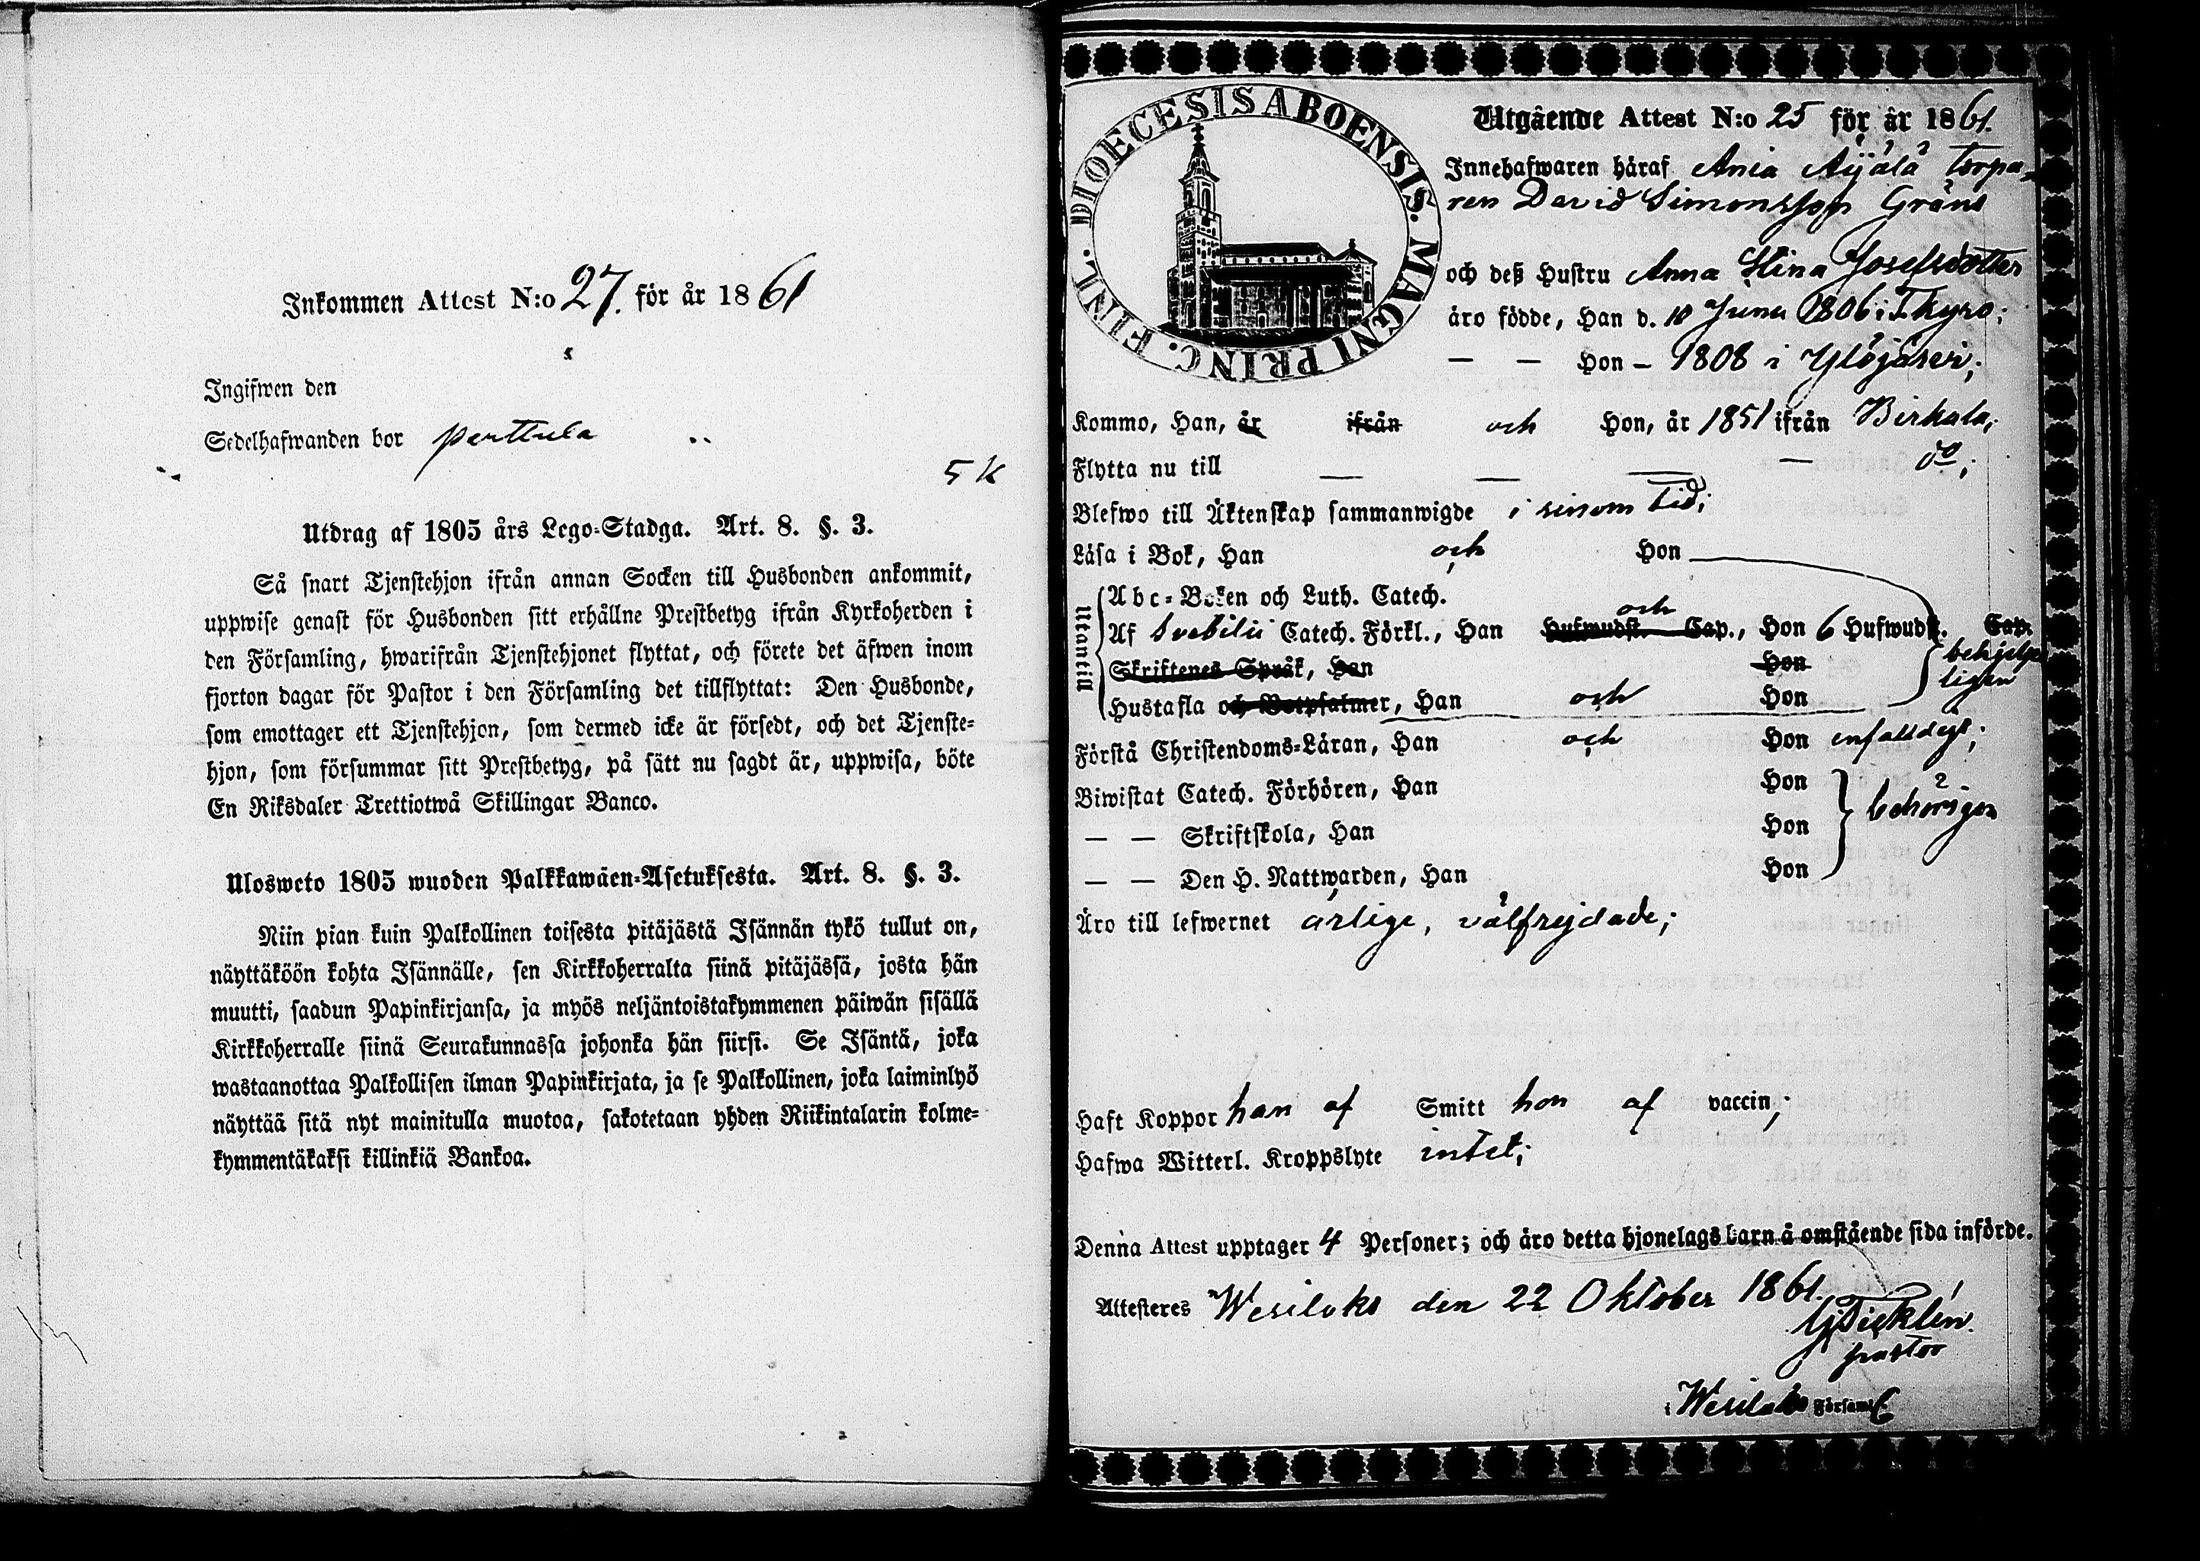 Inkommen Attest N:o 27. för år 1861
Ingifwen den
Sedelhafwanden bor perttula
5 k
Utdrag af 1805 års Lego-Stadga. Art. 8. §. 3.
Så snart Tjenstehjon ifrån annan Socken till Husbonden ankommit,
uppwise genast för Husbonden sitt erhållne Prestbetyg ifrån Kyrkoherden i
den Församling, hwarifrån Tjenstehjonet flyttat, och förete det äfwen inom
fjorton dagar för Pastor i den Församling det tillflyttat: Den Husbonde,
som emottager ett Tjenstehjon, som dermed icke är försedt, och det Tjenste-
hjon, som försummar sitt Prestbetyg, på sätt nu sagdt är, uppwisa, böte
En Riksdaler Trettiotwå Skillingar Banco.
Ulosweto 1805 wuoden Palkkawäen-Asetuksesta. Art. 8. §. 3.
Niin pian kuin Palkollinen toisesta pitäjästä Isännän tykö tullut on,
näyttäköön kohta Isännälle, sen Kirkkoherralta siinä pitäjässä, josta hän
muutti, saadun Papinkirjansa, ja myös neljäntoistakymmenen päiwän sisällä
Kirkkoherralle siinä Seurakunnassa johonka hän siirsi. Se Isäntä, joka
wastaanottaa Palkollisen ilman Papinkirjata, ja se Palkollinen, joka laiminlyö
näyttää sitä nyt mainitulla muotoa, sakotetaan yhden Riikintalarin kolme-
kymmentäkaksi killinkiä Bankoa.
DIOECESIS ABOENSIS. MAGNI PRINC. FINL.
Utgående Attest N:o 25 för år 1861.
Innehafwaren häraf Ania Äijälä torpa-
ren David Simonsson Gröns
och deß Hustru Anna Stina Josefsdotter
äro födde, Han d. 10 Juni 1806 i Tkyro;
— — Hon – 1808 i Ylöjärvi;
Kommo, Han, år ifrån och Hon, år 1851 ifrån Birkala,
Flytta nu till — — — do;
Blefwo till Äktenskap sammanwigde i sinom tid;
Läsa i Bok, Han och Hon
Utantill
Abc-Boken och Luth. Catech.
Af Svebilii Catech. Förkl., Han Hufwudst. Cap., och Hon 6 Hufwudst. Cap.
Skriftenes Språk, Han Hon behjelp-
ligen
Hustafla och Botpsalmer, Han och Hon
Förstå Christendoms-Läran, Han och Hon enfaldigt;
Biwistat Catech. Förhören, Han Hon
— — Skriftskola, Han Hon behörigen
— — Den H. Nattwarden, Han Hon
Äro till lefwernet ärlige, välfrejdade;
Haft Koppor han af Smitt hon af vaccin;
Hafwa Witterl. Kroppslyte intet;
Denna Attest upptager 4 Personer; och äro detta hjonelags barn å omstående sida införde.
Attesteres Wesilaks den 22 Oktober 1861.
pastor
i Wesilaks Församl.